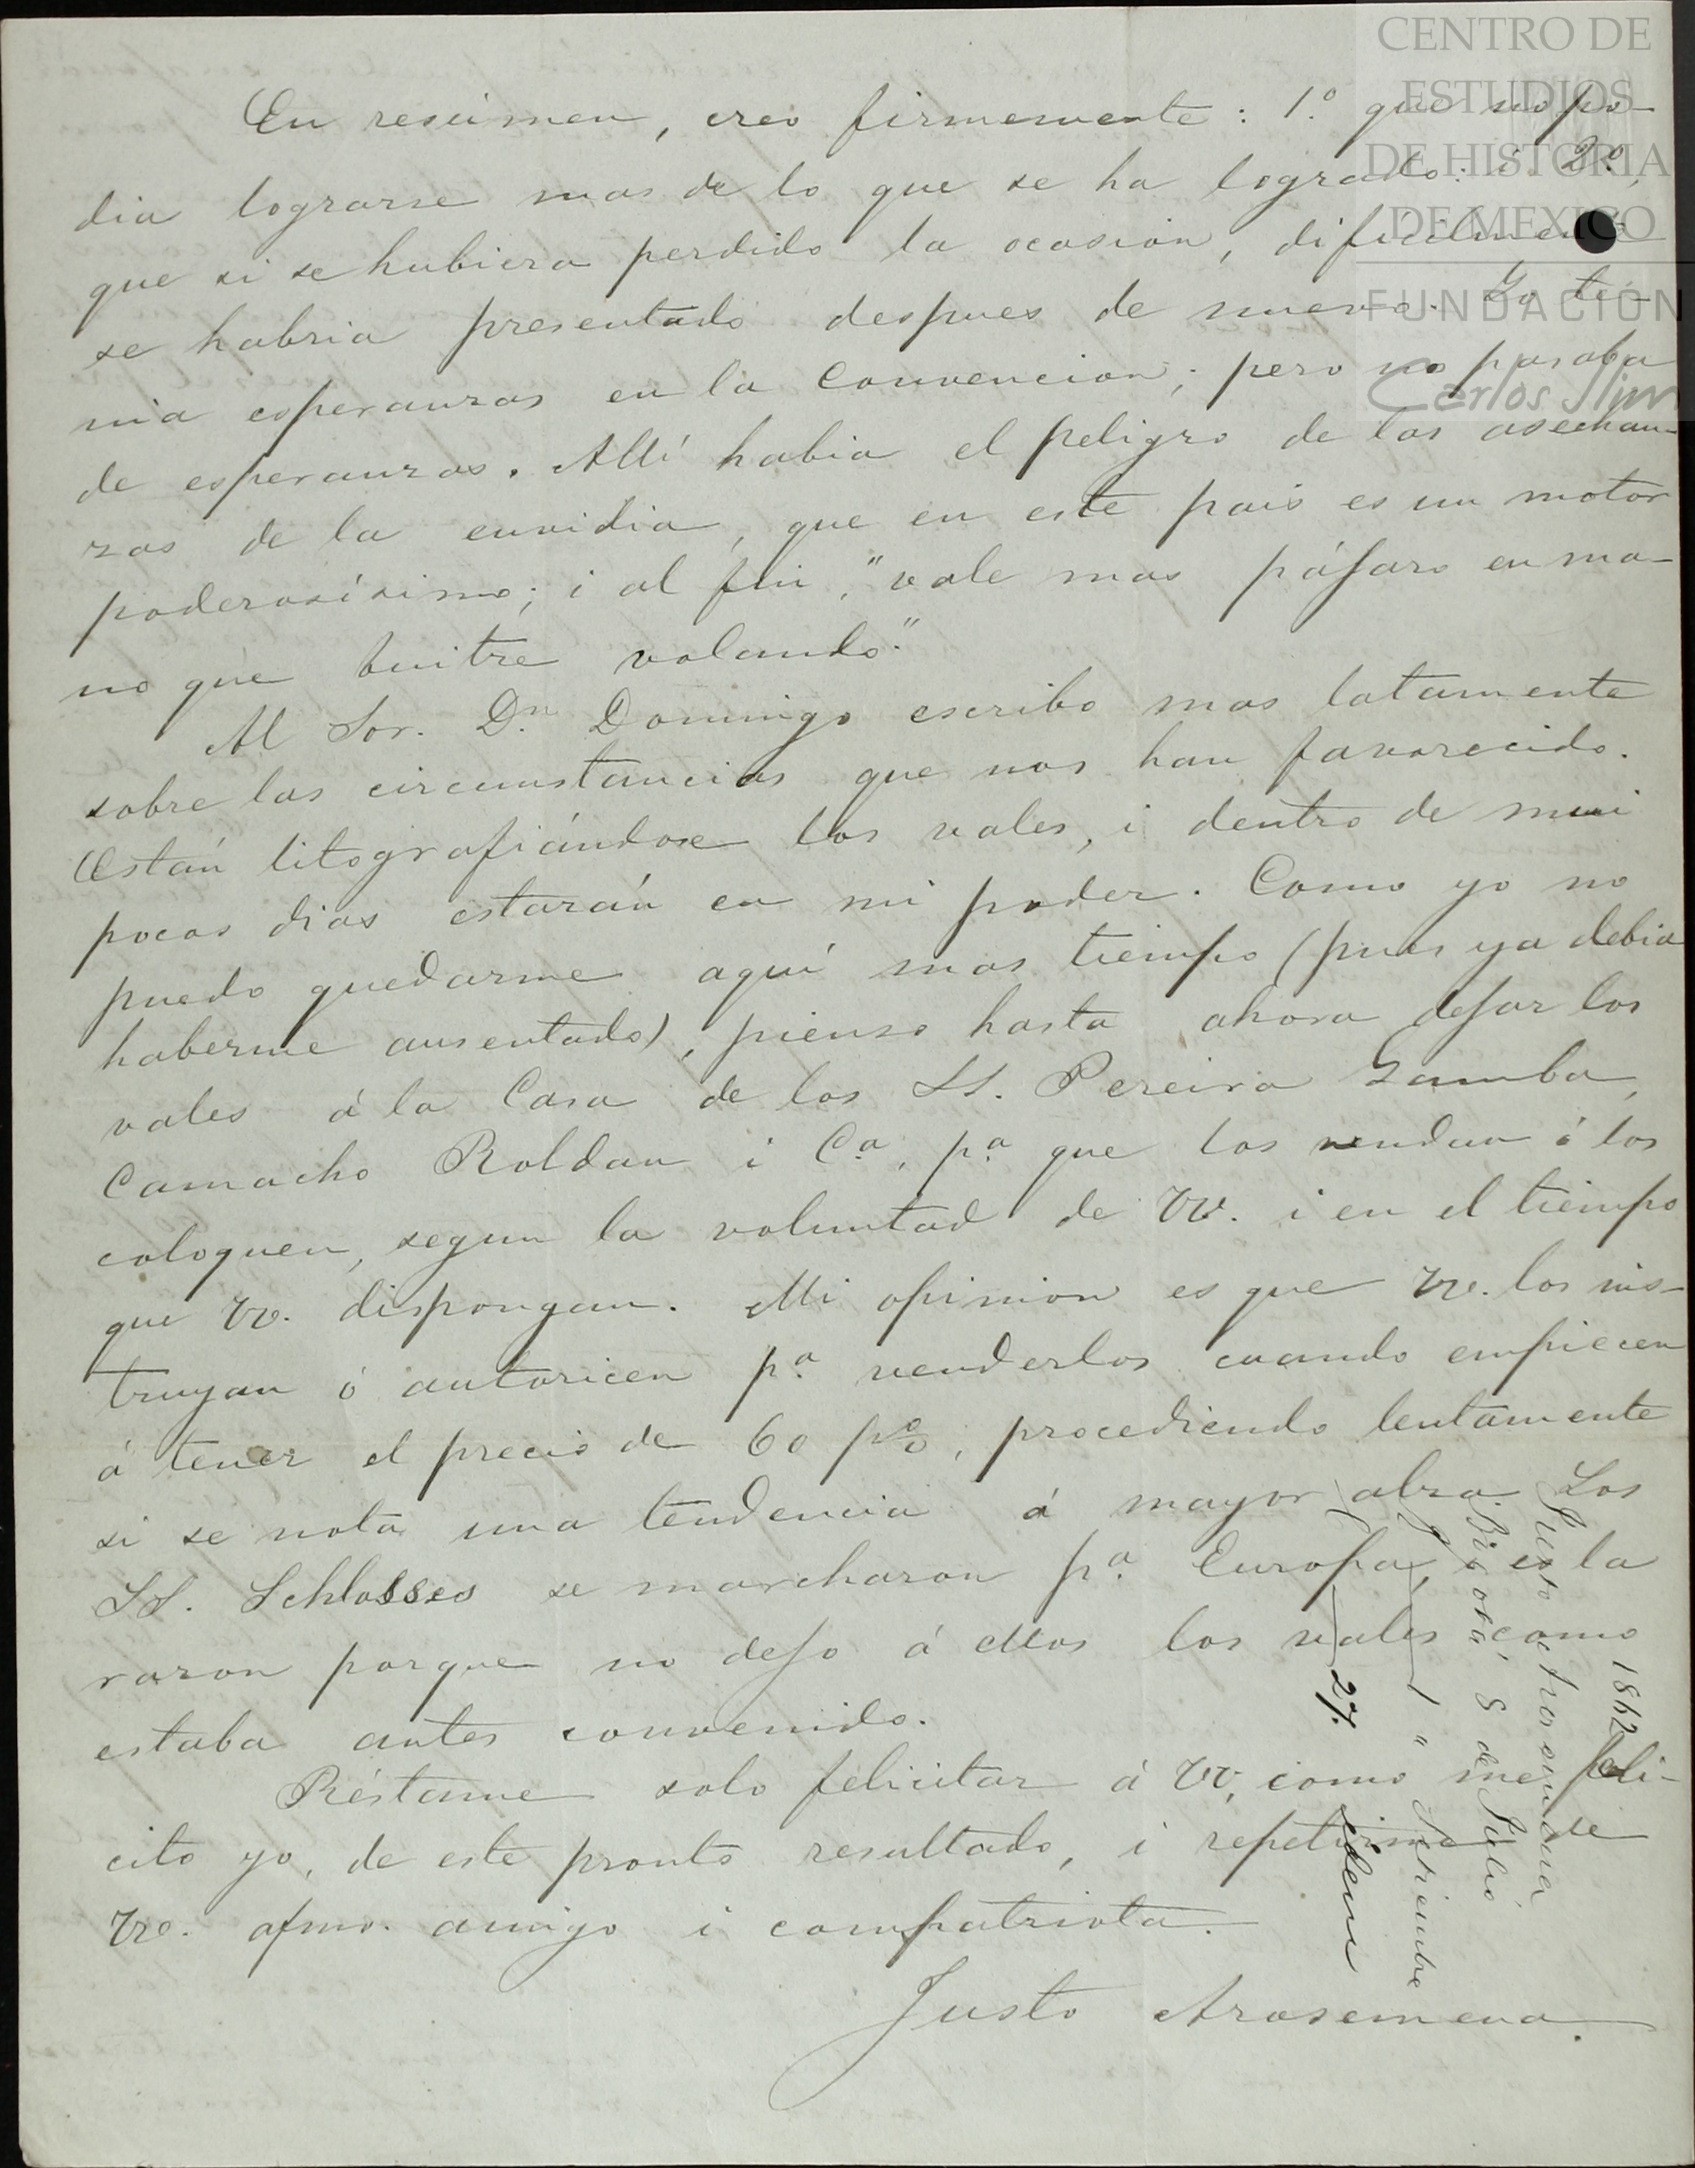 CENTRO DE
ESTUDIOS
DE HISTORIA
DE MEXICO
FUNDACIÓN
Carlos Slim
En resúmen, creo firmemente: 1.º que no po-
dia lograrse mas de lo que se ha logrado: i 2.º,
que si se hubiera perdido la ocasion, dificilmente
se habria presentado despues de nuevo. Yo te-
nia esperanzas en la Convencion; pero no pasaba
de esperanzas. Allí habia el peligro de las asechan-
zas de la envidia, que en este pais es un motor
poderosísimo; i al fin, "vale mas pájaro en ma-
no que buitre volando."
Al Sor. Dn. Domingo escribo mas latamente
sobre las circunstancias que nos han favorecido.
Están litografiándose los vales, i dentro de mui
pocos dias estarán en mi poder. Como yo no
puedo quedarme aquí mas tiempo (pues ya debia
haberme ausentado), pienso hasta ahora dejar los
vales á la Casa de los SS. Pereira Gamba,
Camacho Roldan i Cª, pª que los vendan ó los
coloquen, segun la voluntad de VV. i en el tiempo
que VV. dispongan. Mi opinion es que VV. los ins-
truyan ó autoricen pª venderlos cuando empiecen
á tener el precio de 60 p%, procediendo lentamente
si se nota una tendencia á mayor alza. Los
SS. Schlosses se marcharon pª Europa, i es la
razon porque no dejo á ellos los vales como
estaba antes convenido.
Réstame solo felicitar á VV, como me feli-
cito yo, de este pronto resultado, i repetirme de
VV. afmo. amigo i compatriota.
Justo Arosemena.
1862
Justo Arosemena
Bogotá, 8 de Julio
1 " Setiembre
27. idem